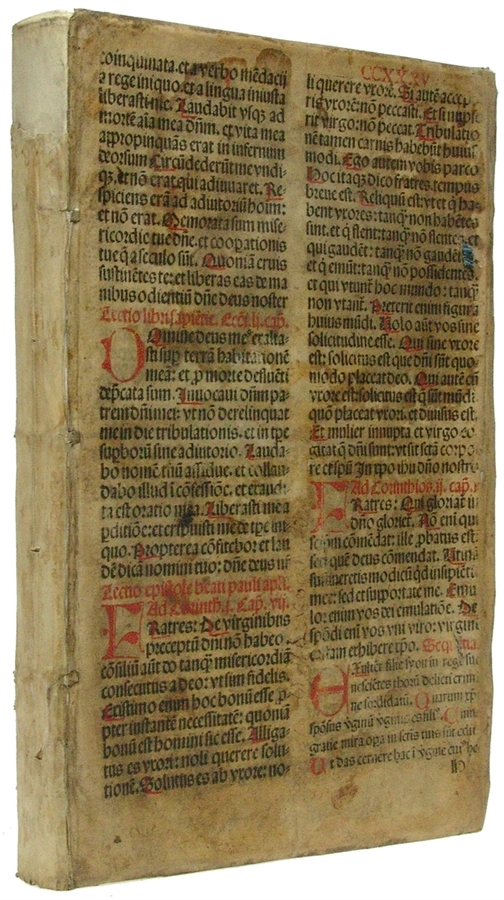 coinquinata. et a verbo mēdacij
a rege iniquo. et a lingua iniusta
liberasti me. Laudabit vsqȝ ad
mortē aīa mea dñm. et vita mea
appropinquās erat in infernum
deorsum Circūdederūt me vndi-
qȝ. et nō erat qui adiuuaret. Re-
spiciens erā ad adiutoriū hoīm:
et nō erat. Memorata sum mise-
ricordie tue dñe. et cooperationis
tue q̄ a seculo sūt. Quoniā eruis
sustinētes te: et liberas eas de ma
nibus odientiū dñe deus noster
Lectio libri sapiētie. Ecci. li. cap.
Omine deus me⁹ exalta-
sti sup̄ terrā habitationē
mea: et p̄ morte defluēti
dep̄cata sum. Inuocaui dñm pa-
trem dñi mei: vt nō derelinquat
me in die tribulationis. et in tp̄e
sup̄borū sine adiutorio. Lauda-
bo nomē tuū assidue. et collau-
dabo illud ī cōfessiōe. et exaudi-
ta est oratio mea. Liberasti me a
p̄ditiōe: et eripuisti me de tp̄e ini-
quo. Propterea cōfitebor et lau
dē dicā nomini tuo: dñe deus nr̄
Lectio epistole beati pauli apl̄i
Ad Corinth. j. Cap. vij.
Fratres: De virginibus
preceptū dñi nō habeo
cōsiliū aūt do tanqȝ misericordiā
consecutus a deo: vt sim fidelis.
Existimo enim hoc bonū esse p̄
pter instantē necessitatē: quoniā
bonū est homini sic esse. Alliga-
tus es vxori: noli querere solu
tionē. Solutus es ab vxore: no-
CCXXXV
li querere vxorē. Si autē accep
ris vxorē: nō peccasti. Et si nupse
rit virgo: nō peccat. Tribulatio
nē tamen carnis habebūt huius
modi. Ego autem vobis parco
Hoc itaqȝ dico fratres. tempus
breue est. Reliquū est: vt et q̄ ha-
bent vxores: tanqȝ non habētes
sint. et q̄ flent: tanqȝ nō flentes. et
qui gaudēt: tanqȝ nō gaudēt
et q̄ emūt: tanqȝ nō possidentes
et qui vtunt hoc mundo: tanqȝ
non vtant. Preterit enim figura
huius mūdi. Volo aūt vos sine
solicitudine esse. Qui sine vxore
est: solicitus est que dñi sūt quo-
modo placeat deo. Qui autē cū
vxore est: solicitus est q̄ sūt mūdi
quō placeat vxori. et diuisus est.
Et mulier innupta et virgo co-
gitat q̄ dñi sunt: vt sit sctā corpo
re et sp̄u In xp̄o ihu dño nostro
Ad Corinthios. ij. cap. x
Fratres: Qui gloriat̄ i
dño gloriet̄. Nō eni qui
seip̄m cōmēdat: ille p̄batus est:
sed quē deus cōmendat. Vtinā
sustineretis modicū qd insipiēti
mee: sed et supportate me. Emu
lor enim vos dei emulatiōe. De
spōdi eni vos vni viro: virginē
castam exhibere xp̄o. Sequētia.
ne sordidant̄. Quarum xp̄s